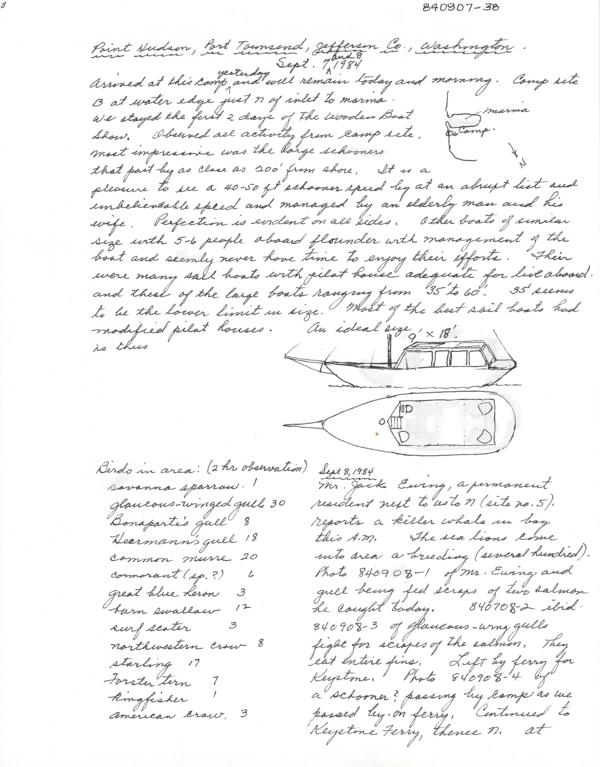 840907-38
Point Hudson, Port Townsend, Jefferson Co., Washington.
Sept. 7 and 8 1984
Arrived at this camp yesterday and will remain today and morning. Camp site
is at water edge just N of inlet to marina.
We stayed the first 2 days of the Wooden Boat
Show. Observed all activity from camp site.
Most impressive was the large schooners
that past by as close as 200' from shore. It is a
pleasure to see a 40-50 ft schooner speed by at an abrupt list and
unbelieveable speed and managed by an elderly man and his
wife. Perfection is evident on all sides. Other boats of similar
size with 5-6 people aboard flounder with management of the
boat and seemly never have time to enjoy their efforts. Their
were many sail boats with pilot house adequate for live aboard.
and these of the large boats ranging from 35' to 60'. 35' seems
to be the lower limit in size. Most of the best sail boats had
modified pilot houses. An ideal size
is thus
marina
camp
N
9' x 18'
Birds in area: (2 hr observation)
savanna sparrow 1
glaucous-winged gull 30
Bonaparte's gull 8
Heermann's gull 18
common murre 20
cormorant (sp.?) 6
great blue heron 3
barn swallow 12
surf scoter 3
northwestern crow 8
starling 17
Forster tern 7
kingfisher 1
american crow 3
Sept 8, 1984
Mr. Jack Ewing, a permanent
resident next to us to N (site no. 5).
reports a killer whale in bay
this A.M. The sea lions come
into area a breeding (several hundred).
Photo 840908-1 of Mr. Ewing and
gull being fed scraps of two salmon
he caught today. 840908-2 ibid
840908-3 of glaucous-wing gulls
fight for scrapes of the salmon. They
eat entire fins. Left by ferry for
Keystone. Photo 840908-4 of
a schooner? passing by camp as we
passed by on ferry. Continued to
Keystone Ferry, thence N. at